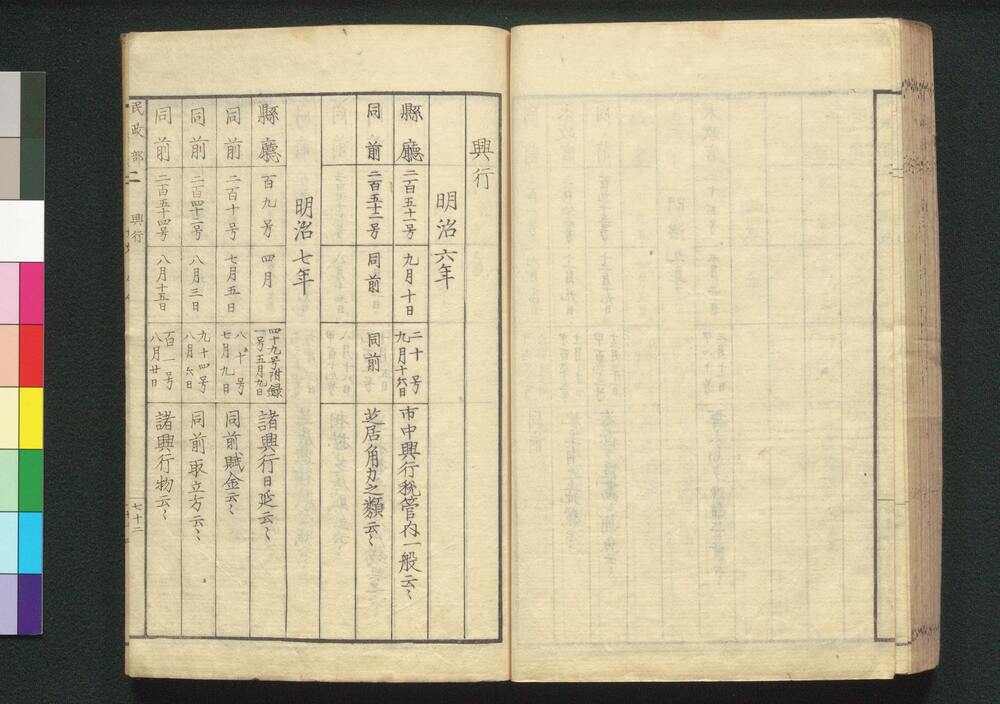 興行
明治六年
縣廳 二百五十一号 九月十日 二十号 九月十六日 市中興行税管内一般云〻
同前 二百五十二号 同前 同前 芝居角力之類云〻
明治七年
縣廳 百九号 四月 四十九号附録 一号五月九日 諸興行日延云〻
同前 二百十号 七月五日 八十号 七月九日 同前賦金云〻
同前 二百四十二号 八月三日 九十四号 八月六日 同前取立方云〻
同前 二百五十四号 八月十五日 百一号 八月廿日 諸興行物云〻
民政部二 興行 七十二